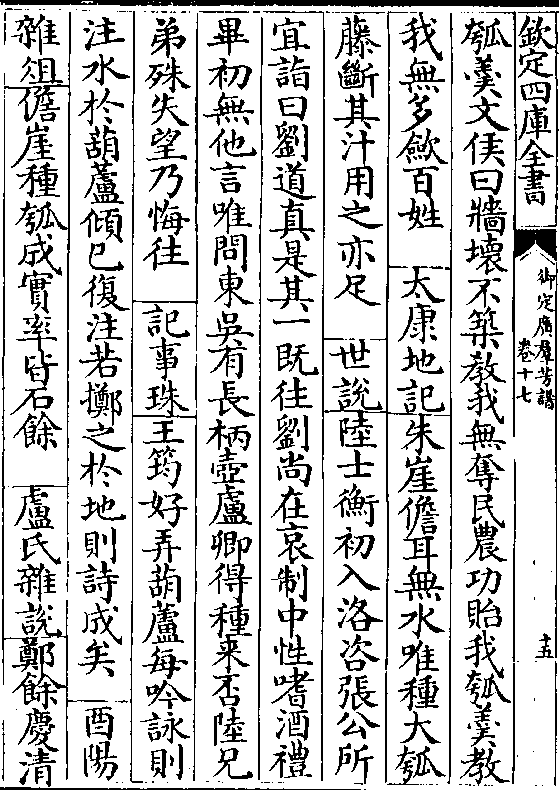 欽定四庫全書
御定廣羣芳譜
卷十七
十五
瓠羹文侯曰牆壞不築教我無奪民農功貽我瓠羹教
我無多歛百姓 太康地記朱崖儋耳無水唯種大瓠
藤斷其汁用之亦足 世說陸士衡初入洛咨張公所
宜詣曰劉道真是其一既往劉尚在哀制中性嗜酒禮
畢初無他言唯問東吳有長柄壺盧卿得種来否陸兄
弟殊失望乃悔往 記事珠王筠好弄葫蘆每吟詠則
注水於葫蘆傾已復注若擲之於地則詩成矣 酉陽
雜俎儋崖種瓠成實率皆石餘 盧氏雜說鄭餘慶清